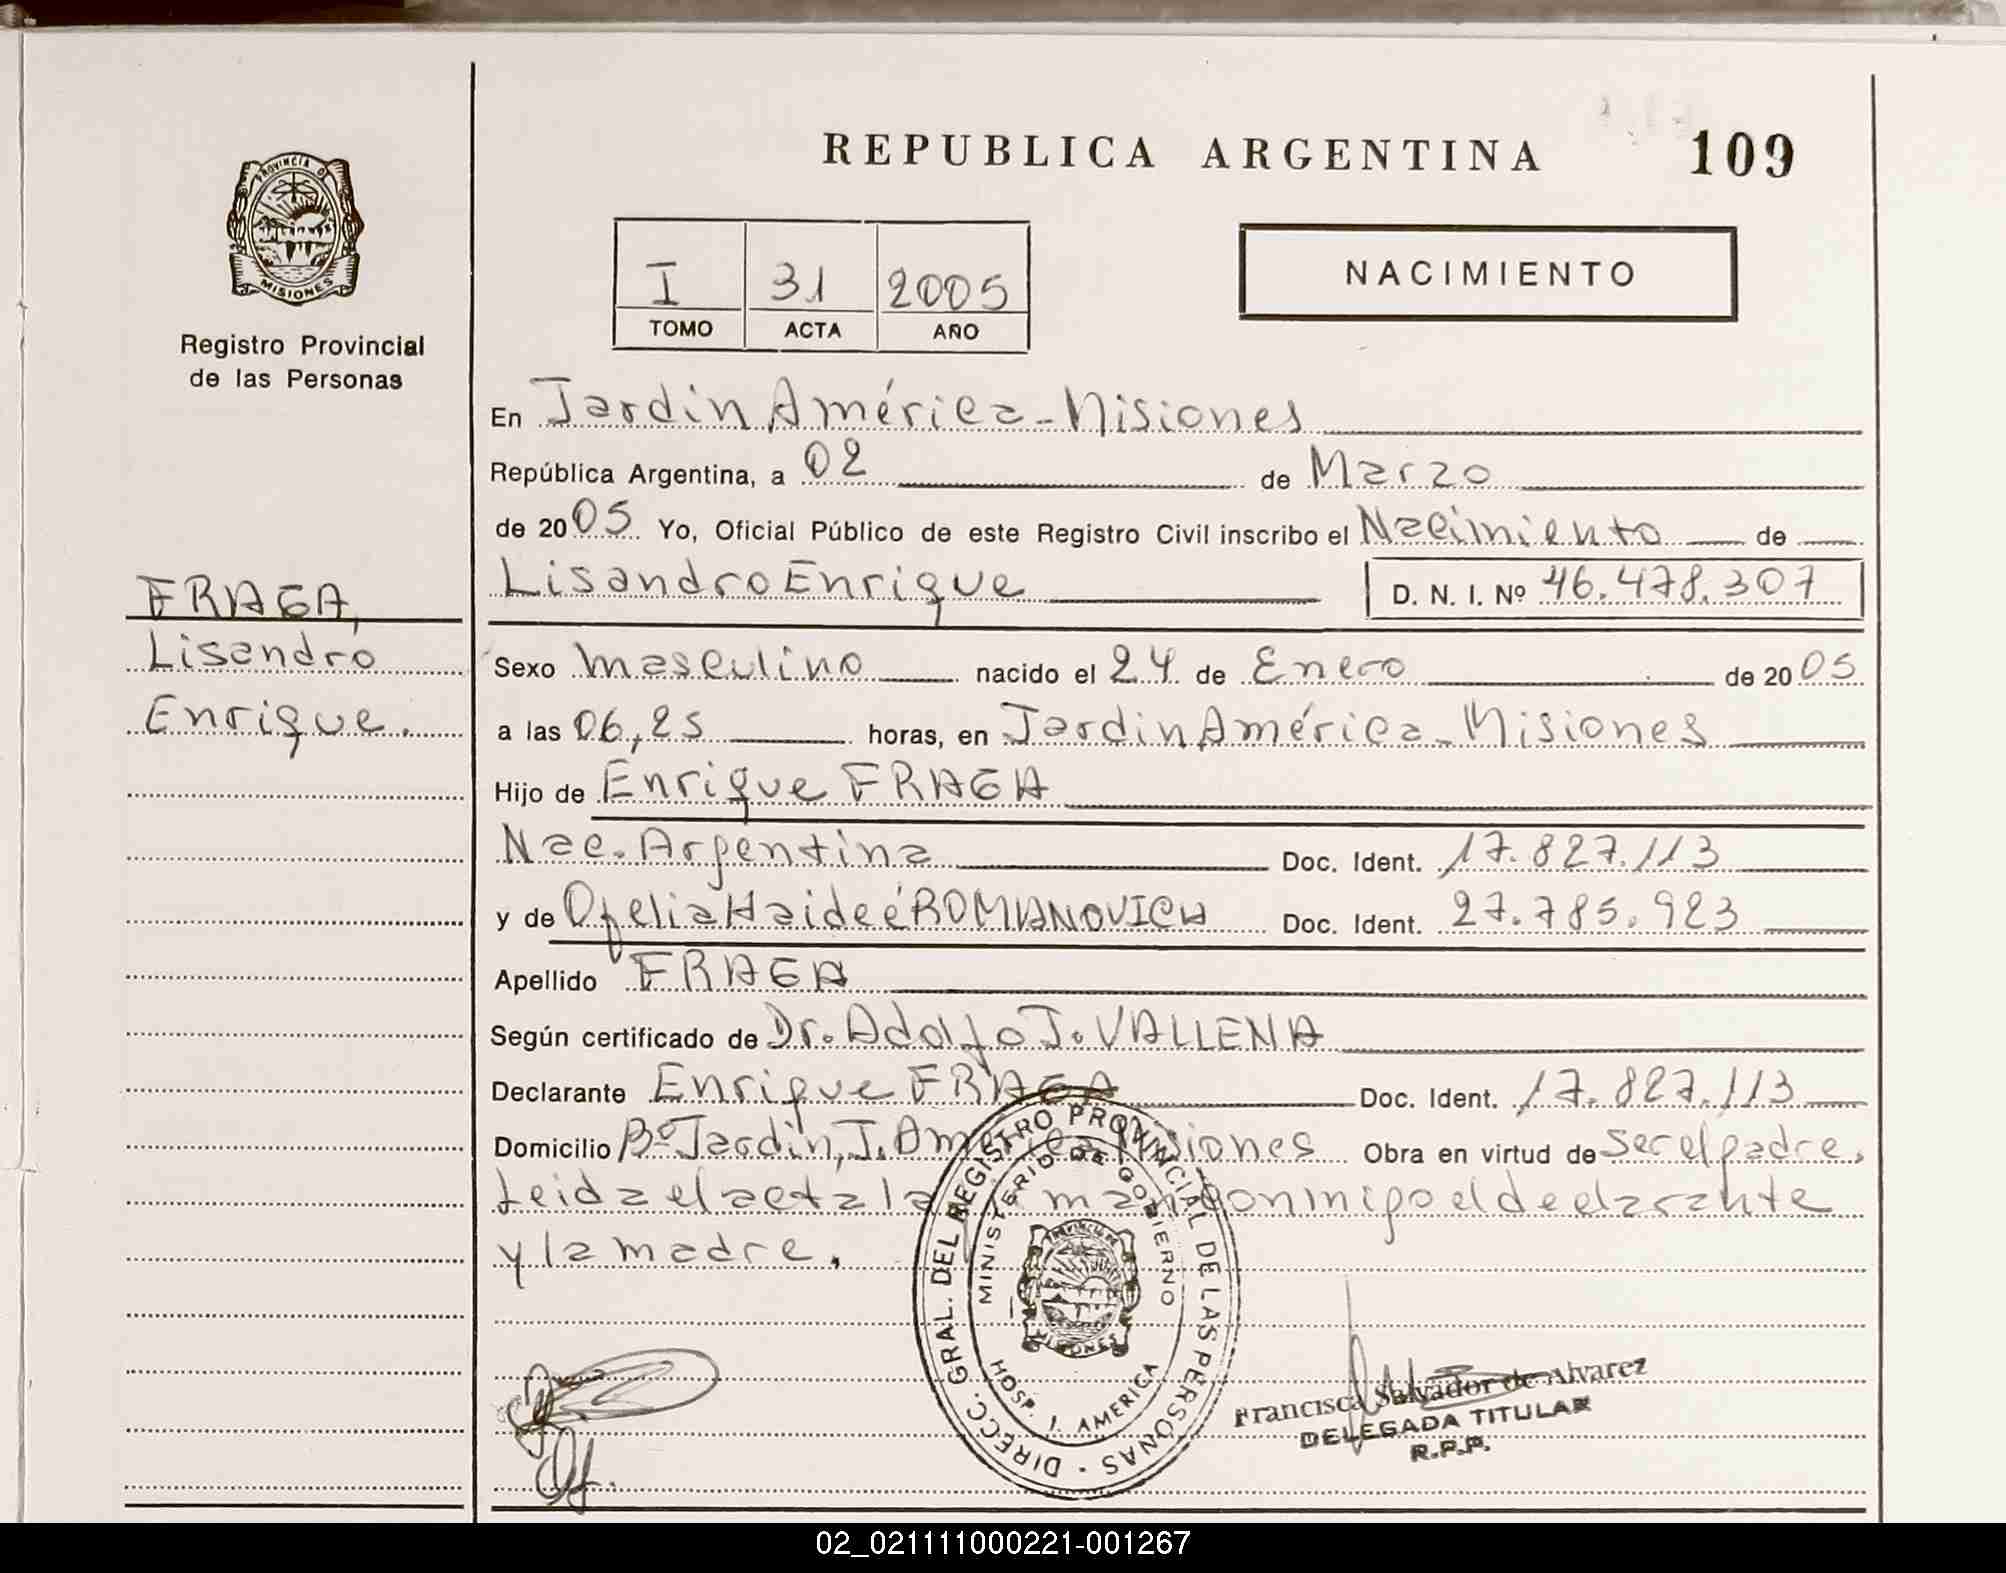 REPUBLICA ARGENTINA 109
PROVINCIA DE
MISIONES
Registro Provincial
de las Personas
I 31 2005
TOMO ACTA AÑO
NACIMIENTO
FRAGA,
Lisandro
Enrique.
En Jardín América - Misiones
República Argentina, a 02 de Marzo
de 2005 Yo, Oficial Público de este Registro Civil inscribo el Nacimiento de
Lisandro Enrique D. N. I. Nº 46.478.307
Sexo masculino nacido el 24 de Enero de 2005
a las 06,25 horas, en Jardín América - Misiones
Hijo de Enrique FRAGA
Nac. Argentina Doc. Ident. 17.827.113
y de Ofelia Haideé ROMANOVICH Doc. Ident. 27.785.923
Apellido FRAGA
Según certificado de Dr. Adolfo J. VALLENA
Declarante Enrique FRAGA Doc. Ident. 17.827.113
Domicilio Bº Jardín, J. América Misiones Obra en virtud de ser el padre.
Leida el acta la man conmigo el declarante
y la madre.
DIRECC. GRAL. DEL REGISTRO PROVINCIAL DE LAS PERSONAS
MINISTERIO DE GOBIERNO
MISIONES
HOSP. J. AMERICA
Francisca Salvador de Alvarez
DELEGADA TITULAR
R.P.P.
02_021111000221-001267